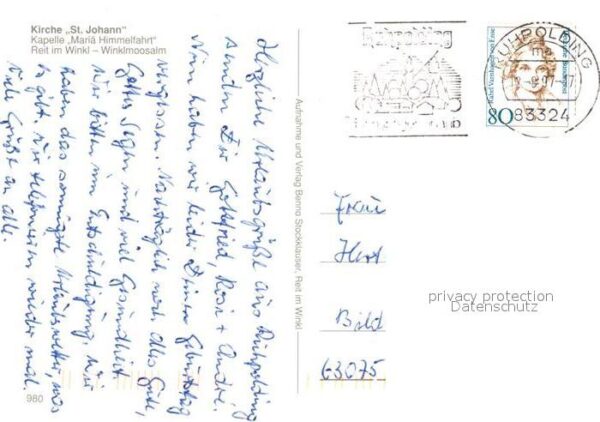 Kirche „St. Johann"
Kapelle „Mariä Himmelfahrt"
Reit im Winkl – Winklmoosalm
Herzliche Urlaubsgrüße aus Ruhpolding
senden Dir Gottfried, Rosi + André.
Nun haben wir leider Deinen Geburtstag
vergessen. Nachträglich noch alles Gute,
Gottes Segen und viel Gesundheit
Wir bitten um Entschuldigung. Wir
haben das sonnigste Urlaubswetter, was
es gibt. Wir telefonieren wieder mal.
Viele Grüße an alle.
980
Aufnahme und Verlag Benno Stockklauser, Reit im Winkl
Ruhpolding
RUHPOLDING
83324
80
Frau
Bild
63075
privacy protection
Datenschutz